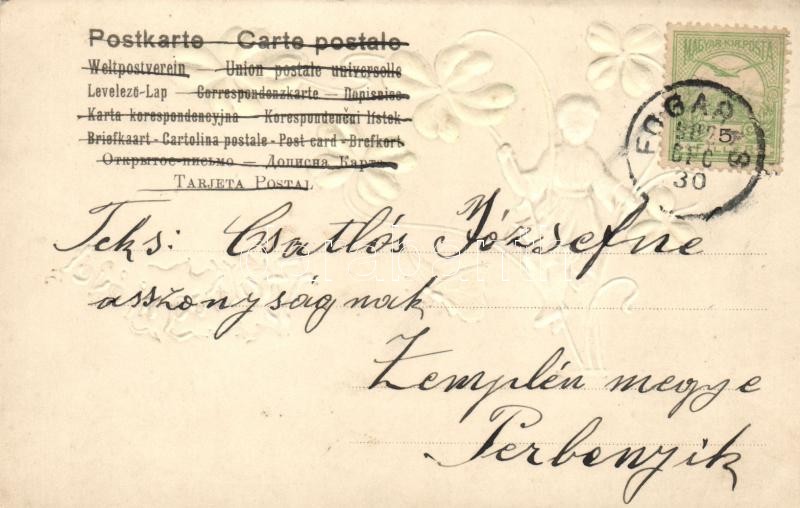 Postkarte – Carte postale
Weltpostverein – Union postale universelle
Levelező-Lap – Correspondenzkarte – Dopisnice
Karta korespondencyjna – Korespondenční lístek
Briefkaart - Cartolina postale - Post card - Brefkort
Открытое письмо – Дописна Карта
TARJETA POSTAL
MAGYAR KIR. POSTA
FOGAD
905
DEC
30
Teks: Csatlós Józsefne
asszonyságnak
Zemplén megye
Perbenyik